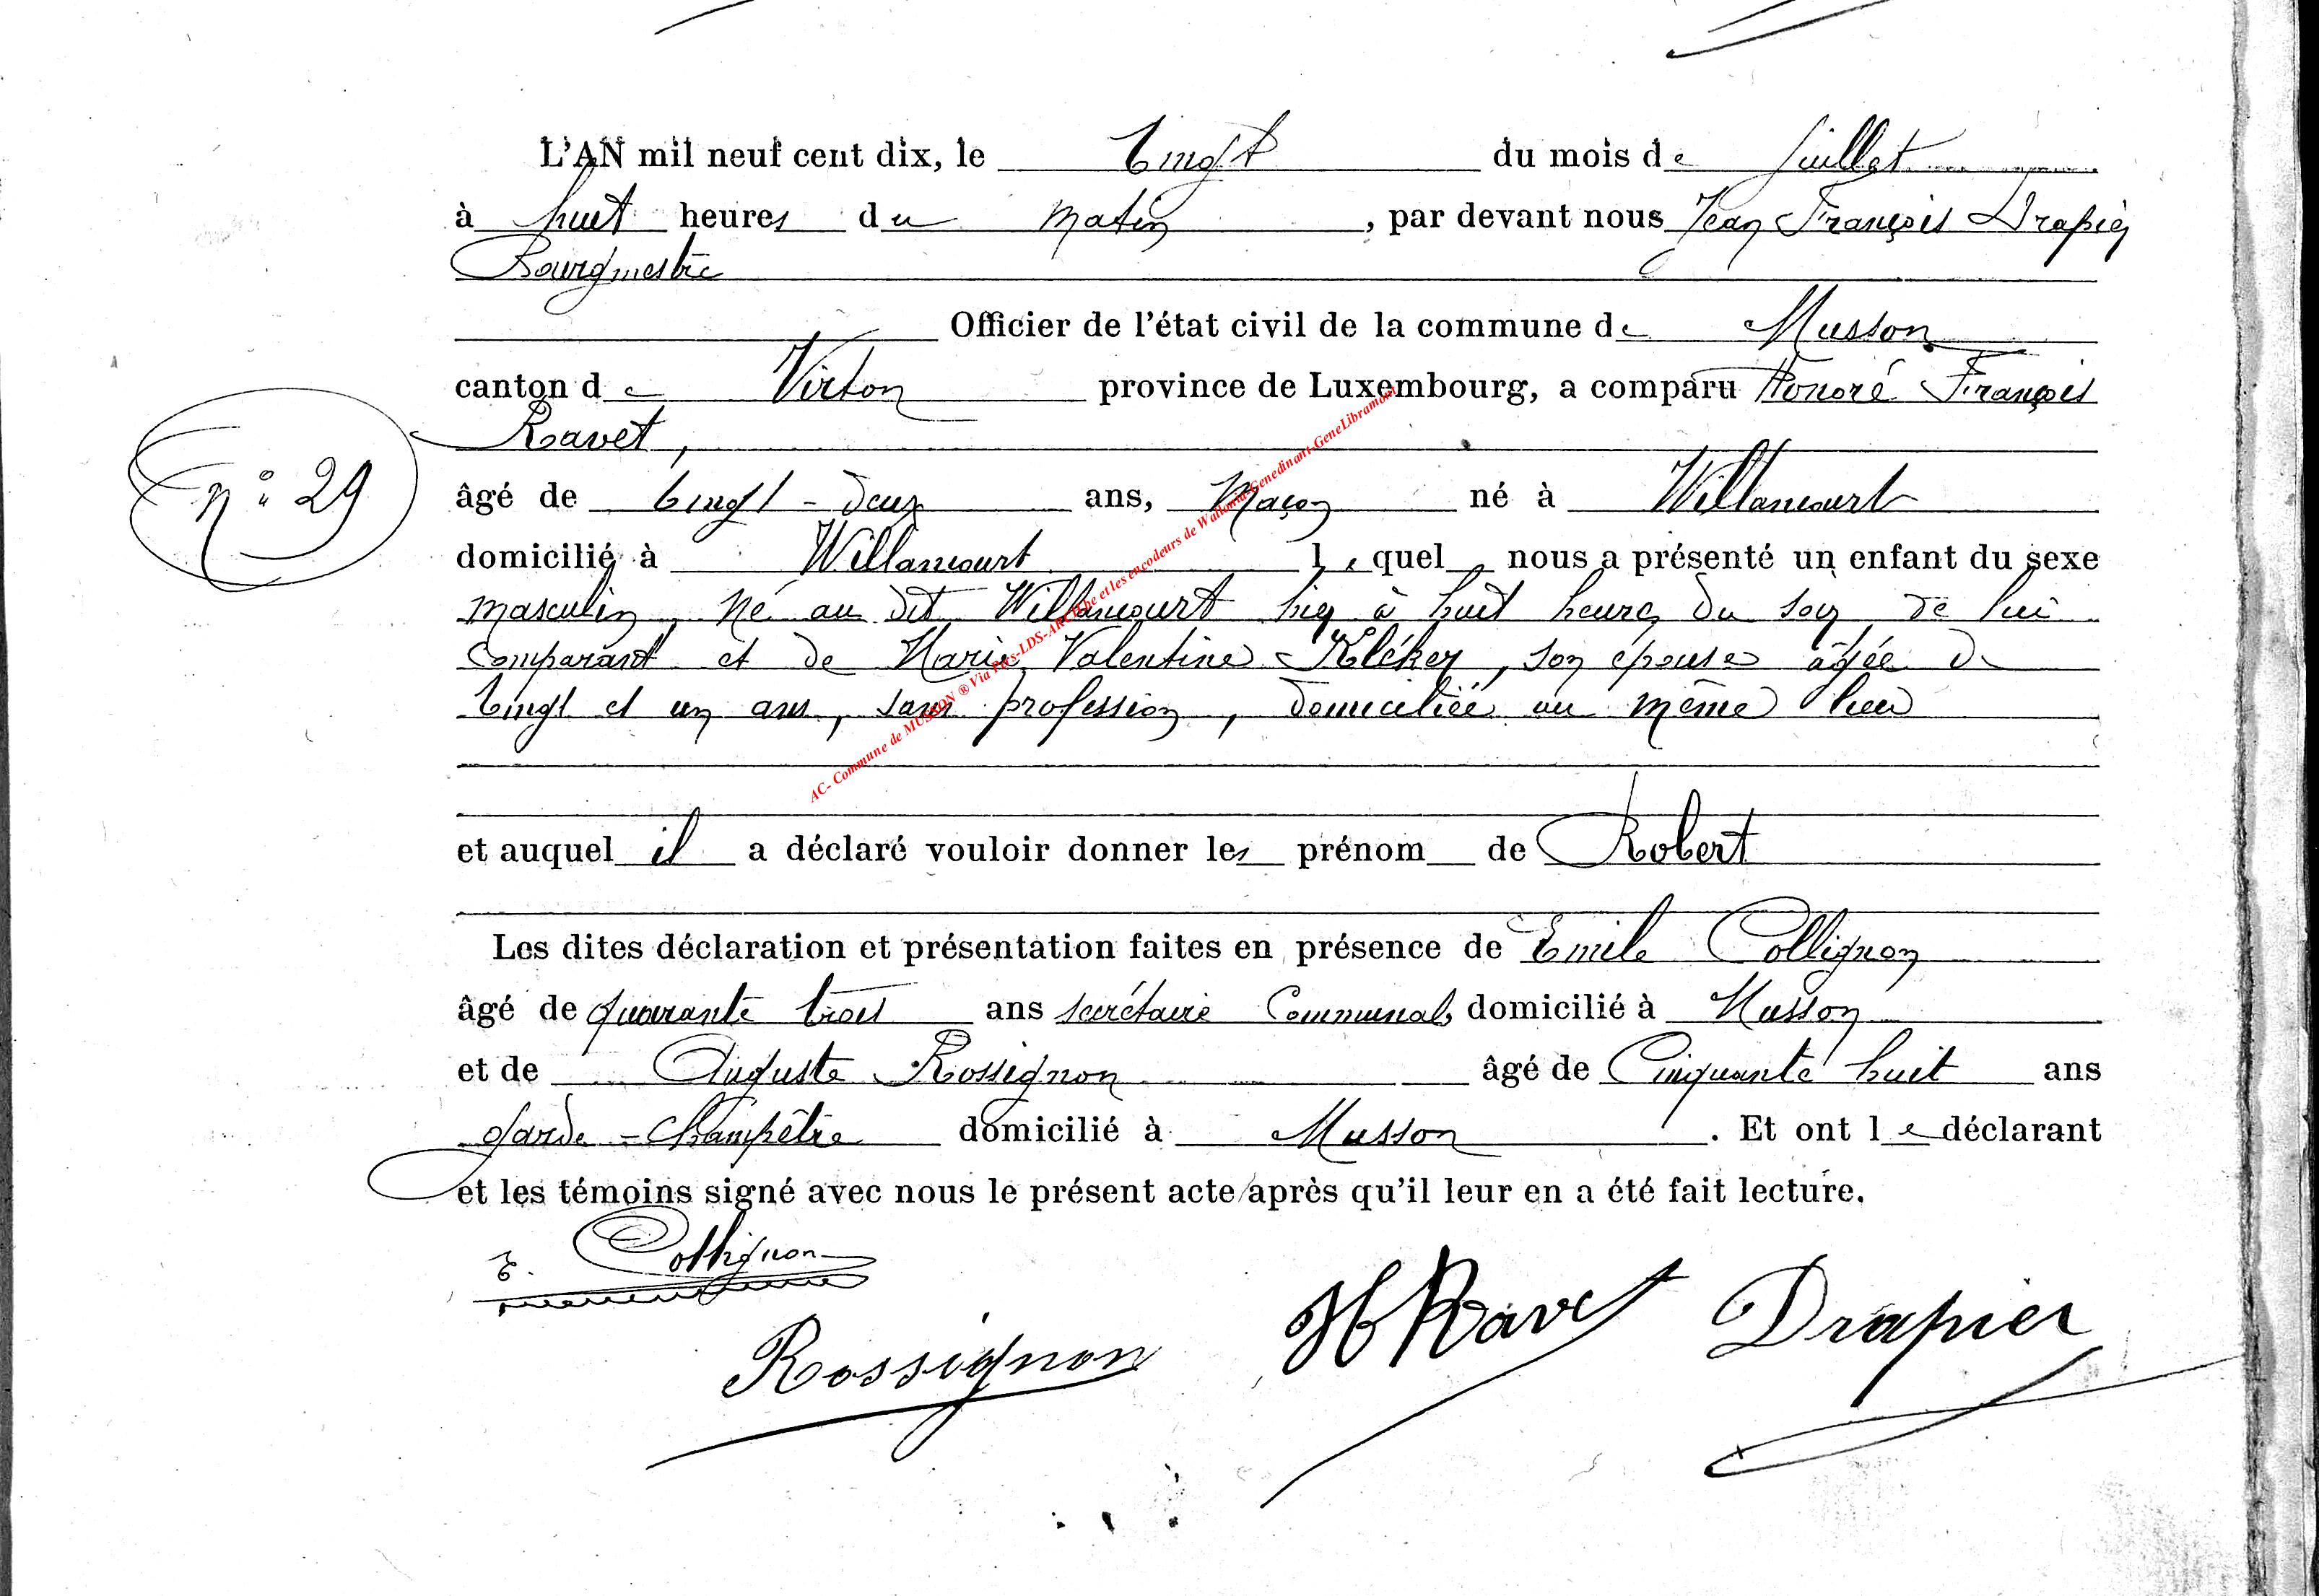 L'AN mil neuf cent dix, le Vingt du mois de Juillet
à huit heures du matin, par devant nous Jean François Drapier
Bourgmestre
Officier de l'état civil de la commune de Musson
canton de Virton province de Luxembourg, a comparu Honoré François
Ravet,
n° 29
âgé de Vingt-deux ans, Maçon né à Willancourt
domicilié à Willancourt lequel nous a présenté un enfant du sexe
masculin, né au dit Willancourt hier à huit heures du soir de lui
comparant et de Marie Valentine Kléker, son épouse âgée de
Vingt et un ans, sans profession, domiciliée au même lieu
et auquel il a déclaré vouloir donner les prénom de Robert
Les dites déclaration et présentation faites en présence de Emile Collignon
âgé de quarante trois ans secrétaire Communal, domicilié à Musson
et de Auguste Rossignon âgé de Cinquante huit ans
garde-champêtre domicilié à Musson. Et ont le déclarant
et les témoins signé avec nous le présent acte après qu'il leur en a été fait lecture.
E. Collignon
Rossignon
H Ravet
Drapier
AC- Commune de MUSSON ® Via Pros-LDS-ARCH.be et les encodeurs de Wallonia-Genedinant-GeneLibramont